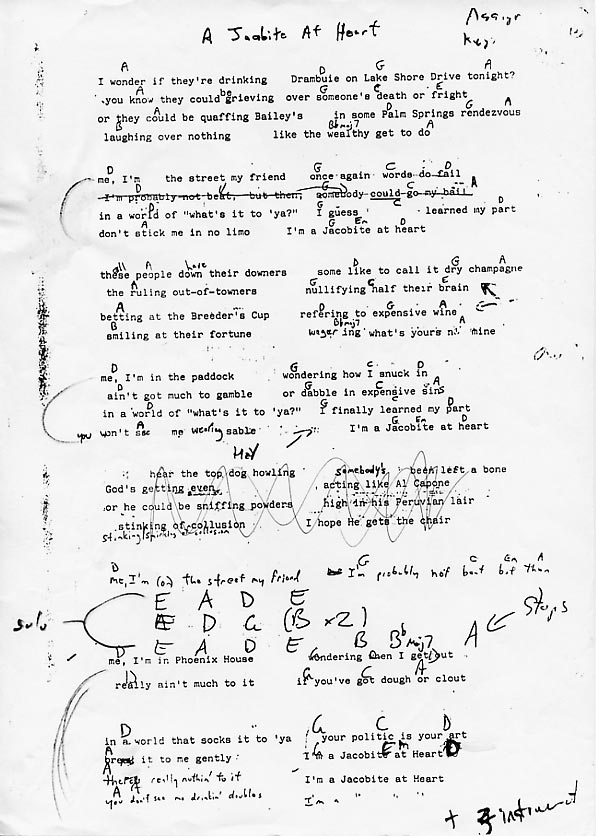 A Jacobite At Heart
Assign
Key:
A D G A
I wonder if they're drinking Drambuie on Lake Shore Drive tonight?
A G C E
you know they could be grieving over someone's death or fright
A D G A
or they could be quaffing Bailey's in some Palm Springs rendezvous
B Bbmaj7 A
laughing over nothing like the wealthy get to do
D G C D
me, I'm the street my friend once again words do fail
D A
I'm probably not beat, but then, somebody could go my bail
D G C D
in a world of "what's it to 'ya?" I guess learned my part
A G Em D
don't stick me in no limo I'm a Jacobite at heart
all A have D G A
these people down their downers some like to call it dry champagne
G C E
the ruling out-of-towners nullifying half their brain
A D G A
betting at the Breeder's Cup refering to expensive wine
B Bbmaj7 A
smiling at their fortune wagering what's yours mine
D G C D
me, I'm in the paddock wondering how I snuck in
D G C A
ain't got much to gamble or dabble in expensive sins
D G C D
in a world of "what's it to 'ya?" I finally learned my part
A G Em D
you won't see me wearing sable I'm a Jacobite at heart
hear the top dog howling somebody's been left a bone
God's getting even acting like Al Capone
or he could be sniffing powders high in his Peruvian lair
stinking of collusion I hope He gets the chair
D G C Em A
me, I'm (on) the street my friend I'm probably not beat but then
solo
E A D E
E D G (B x2)
E A D E B Bbmaj7 A
Stops
D G
me, I'm in Phoenix House wondering when I get out
D G C A
really ain't much to it if you've got dough or clout
D G C D
in a world that socks it to 'ya your politic is your art
A G Em D
it to me gently I'm a Jacobite at Heart
A
there's really nuthin' to it I'm a Jacobite at Heart
A
you don't see me drinkin' doubles I'm a " " "
+